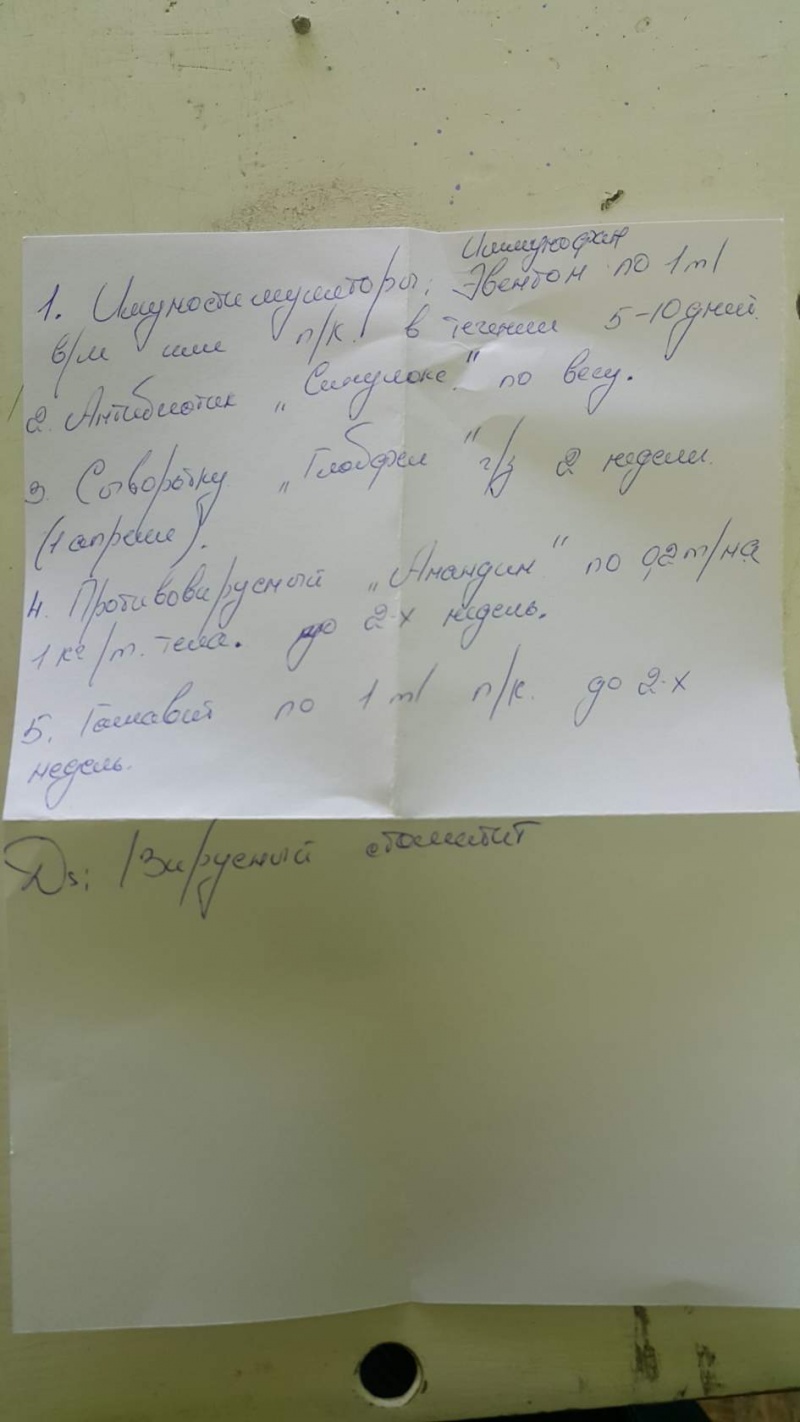 Иммунофан
1. Имуностимуляторы: Эвентон по 1 ml
в/м или п/к. в течении 5-10 дней.
2. Антибиотик „Синулокс" по весу.
3. Сыворотку „Глобфел" ч/з 2 недели.
(1 апреля).
4. Противовирусный „Анандин" по 0,2 ml на
1 кг/m. тела. до 2-х недель.
5. Гамавит по 1 ml п/к. до 2-х
недель.
Ds: Вирусный стоматит